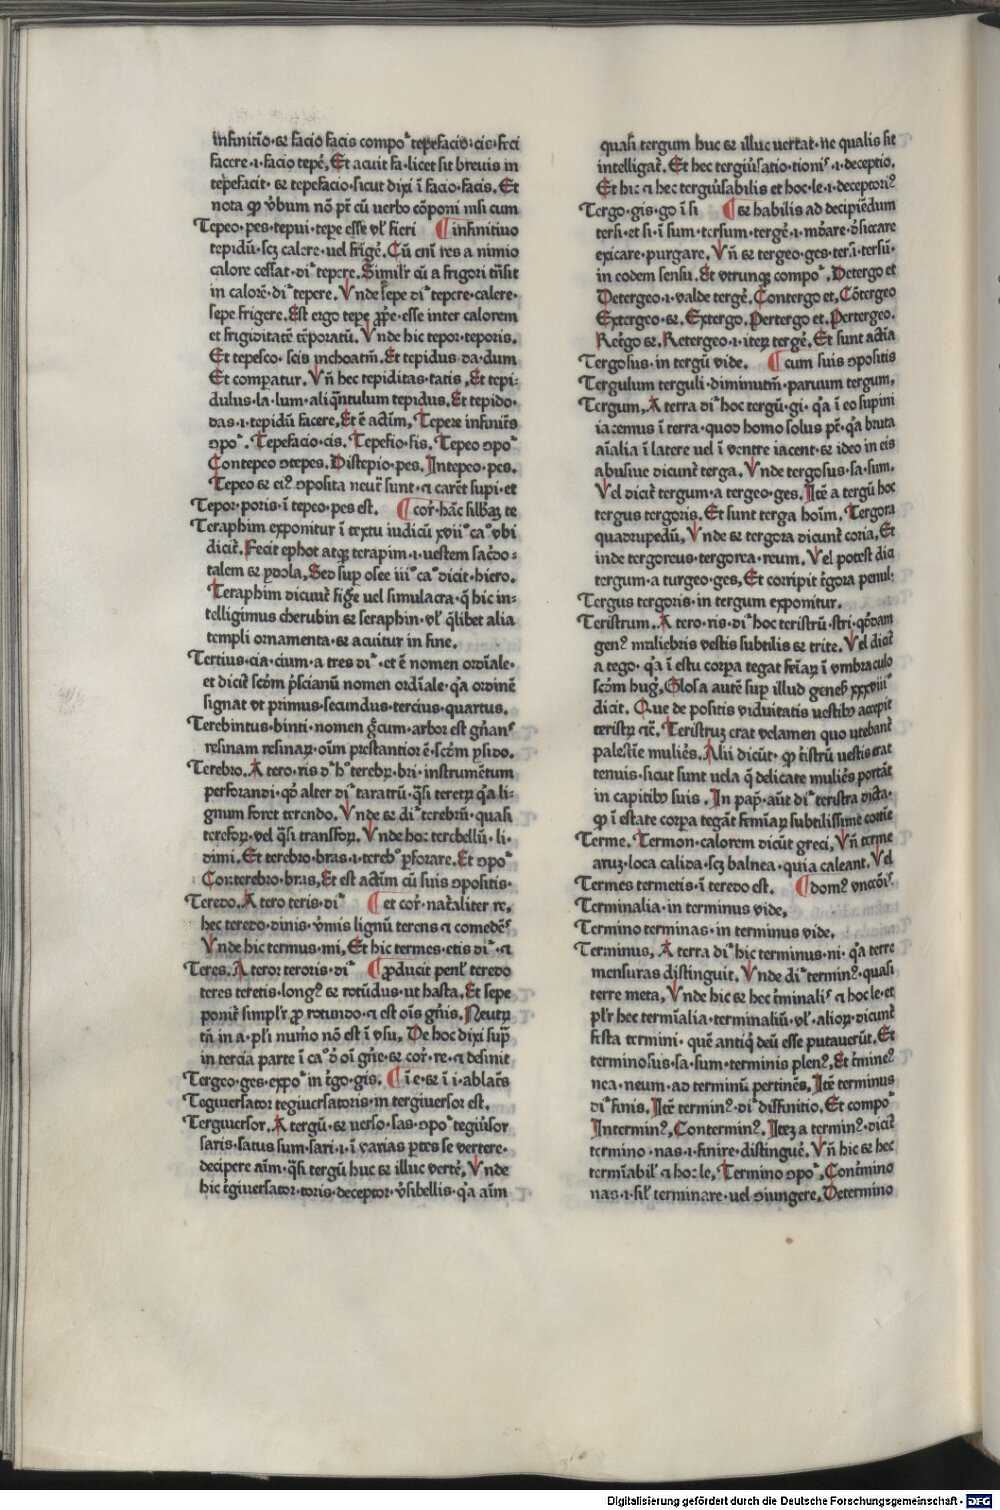 infinitio·et facio facis compoᷣ tepefacio·cis·feci
facere·i·facio tepē, Et acuit fa·licet sit breuis in
tepefacit· et tepefacio·sicut dixi ī facio·facis. Et
nota ꝙ v̄bum nō pt̄ cū uerbo cōponi nisi cum
Tepeo·pes·tepui·tepe esse vꝉ fieri ¶ infinitiuo
tepidū·scꝫ calere·uel frigē. Cū eni res a nimio
calore cessat·di᷑ tepere. Similr̄ cū a frigori trāsit
in calorē·di᷑ tepere. Vnde sepe di᷑ tepere·calere·
sepe frigere. Est ergo tepe ꝓpe·esse inter calorem
et frigiditatē tēporatū. Vnde hic tepor·teporis.
Et tepesco·scis inchoatm̄. Et tepidus·da·dum
Et compatur. Vn̄ hec tepiditas·tatis, Et tepi-
dulus·la·lum·aliqntulum tepidus. Et tepido·
das·i·tepidū facere, Et ē actim, Tepeze infinitēs
ɔpo᷑. Tepefacio·cis. Tepefio·fis, Tepeo ɔpo᷑
Contepeo ɔtepes. Distepio·pes. Intepeo·pes.
Tepeo et eiꝰ ɔposita neut̄ sunt·et carēt supi·et
Tepor·poris·ī tepeo·pes est. ¶ cor᷑·hāc silꝉbaꝫ te
Teraphim exponitur ī textu iudicū xvii᷑ ca᷑ vbi
dicit᷑. Fecit ephot atqꝫ terapim·i·uestem sac̄do-
talem et ydola, Sed sup osee iii᷑ ca᷑ dicit·hiero.
Teraphim dicunt᷑ figᷓe uel simulacra·q̄ hic in-
telligimus cherubin et seraphin·vꝉ qͥlibet alia
templi ornamenta·et acuitur in fine.
Tertius·cia·cium·a tres di᷑·et ē nomen ordīale·
et dicit᷑ scd̄m p̄scianū nomen ordīale·qͣ ordinē
signat vt primus·secundus·tercius·quartus.
Terebintus·binti·nomen gͤcum·arbor est gn̄anˢ
resinam resinaꝝ·oīm prestantior ē·scd̄m ysido.
Terebro. A tero·ris d᷑ h᷑ terebꝝ·bri·instrumētum
perforandi·qd̄ alter di᷑ taratrū·qͣsi teretꝝ qͣ li-
gnum foret terendo. Vnde et di᷑ terebrū·quasi
tereforꝝ·vel qͣsi transforꝝ. Vnde hoc terebellū·li·
dimi, Et terebro·bras·i·tereb᷑ pforare. Et ɔpo᷑
Conterebro·bras, Et est actim cū suis ɔpositis·
Teredo. A tero teris·di᷑ ¶ et cor᷑·nat̄aliter re,
hec teredo·dinis·v̄mis lignū terens et comedēˢ
Vnde hic termus·mi, Et hic termes·etis di᷑·et
Teres. A tero: teroris·di᷑ ¶ ꝓducit penꝉ teredo
teres teretis·longꝰ et rotūdus·ut hasta. Et sepe
ponit᷑ simpl᷑r ꝓ rotundo·et est oīs gn̄is. Neutꝝ
tn̄ in a·pl᷑i num̄o nō est ī vsu, De hoc dixi supᷓ
in tercia parte ī ca᷑ d᷑ oī gn̄e·et cor᷑·re·et desinit
Tergeo·ges·expo᷑ in t̄go·gis. ¶ ī e·et ī i·ablat̄s
Tegiuersator tegiuersatoris·in tergiuersor est.
Tergiuersor. A tergū·et uerso·sas·ɔpo᷑ tegiūsor
saris·satus sum·sari·i·ī varias ptes se vertere·
decipere aīm·qͣsi tergū huc et illuc vertē, Vnde
hic t̄giuersator·toris·deceptor·v̄sibellis·qͣ aīm
quasi tergum huc et illuc uertat·ne qualis sit
intelligat᷑. Et hec tergiūsatio·tionīˢ·i·deceptio.
Et hic et hec tergiūsabilis et hoc·le·i·deceptoriꝰ
Tergo·gis·go ī si ¶ et habilis ad decipiēdum
tersi·et si·ī sum·tersum·tergē·i·mūdare·d᷑siccare
exicare·purgare. Vn̄ et tergeo·ges·ter.i·tersū·
in eodem sensu. Et vtrunqꝫ compo᷑. Detergo et
Detergeo·i·valde tergē. Contergo et, Cōtergeo
Extergeo·et. Extergo. Pertergo et. Pertergeo.
Ret̄go et. Retergeo·i·iteꝝ tergē. Et sunt actīa
Tergosus·in tergū vide. ¶ cum suis ɔpositis
Tergulum terguli·diminutm̄·paruum tergum,
Tergum, A terra di᷑ hoc tergū·gi·qͣ ī eo supini
iacemus ī terra·quod homo solus pt̄·qͣ bruta
aīalia ī latere uel ī ventre iacent·et ideo in eis
abusiue dicunt᷑ terga. Vnde tergosus·sa·sum.
Vel dicit᷑ tergum·a tergeo·ges. Itē a tergū hoc
tergus tergoris. Et sunt terga hoīm. Tergora
quadrupedū, Vnde et tergora dicunt᷑ coria, Et
inde tergoreus·tergorea·reum. Vel potest dici
tergum·a turgeo·ges, Et corripit t̄gora penul:
Tergus tergoris·in tergum exponitur.
Teristrum. A tero·ris·di᷑ hoc teristrū·stri·qͦddam
genꝰ muliebris vestis subtilis et trite. Vel dicit᷑
a tego·qͣ ī estu corpa tegat femīaꝝ ī vmbraculo
scd̄m hug᷑. Glosa autē sup illud genes᷑ xxxviii᷑
dicit. Que de positis viduitatis uestibꝰ accepit
teristꝝ etc̄. Teristruꝫ erat velamen quo utebant᷑
palestīe muliēs. Alii dicūt·ꝙ t̄istrū uestis erat
tenuis·sicut sunt uela q̄ delicate muliēs portāt
in capitibꝰ suis. In pap᷑·aūt di᷑ teristra dicta·
ꝙ ī estate corpa tegāt femīaꝝ subtilissime cortīe
Terme. Termon·calorem dicūt greci, Vn̄ terme
aruꝫ·loca calida·scꝫ balnea·quia caleant. Vel
Termes termetis·ī teredo est. ¶ domꝰ vnctōīˢ.
Terminalia·in terminus vide,
Termino terminas·in terminus vide.
Terminus, A terra di᷑ hic terminus·ni·qͣ terre
mensuras distinguit. Vnde di᷑ terminꝰ·quasi
terre meta, Vnde hic et hec t̄minalīˢ et hoc le·et
pl᷑r hec termīalia·terminaliū·vꝉ·alioꝝ·dicunt᷑
festa termini·quē antiqͥ deū esse putauerūt. Et
terminosus·sa·sum·terminis plenꝰ, Et t̄mineꝰ
nea·neum·ad terminū pertinēs. Itē terminus
di᷑ finis. Itē terminꝰ·di᷑ diffinitio. Et compo᷑
Interminꝰ, Conterminꝰ. Iteꝫ a terminꝰ·dicit᷑
termino·nas·i·finire·distinguē. Vn̄ hic et hec
termīabilˢ et hoc·le, Termino ɔpo᷑, Cont̄mino
nas·i·silꝉ terminare·uel ɔiungere, Determino
Digitalisierung gefördert durch die Deutsche Forschungsgemeinschaft - DFG